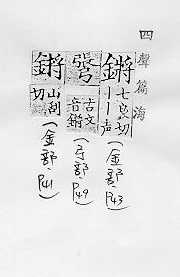 四聲篇海
鏘 七良切 丨丨声 (金部.P43)
古文 音鏘 (弓部.P49)
鏘 山刮切 (金部.P41)